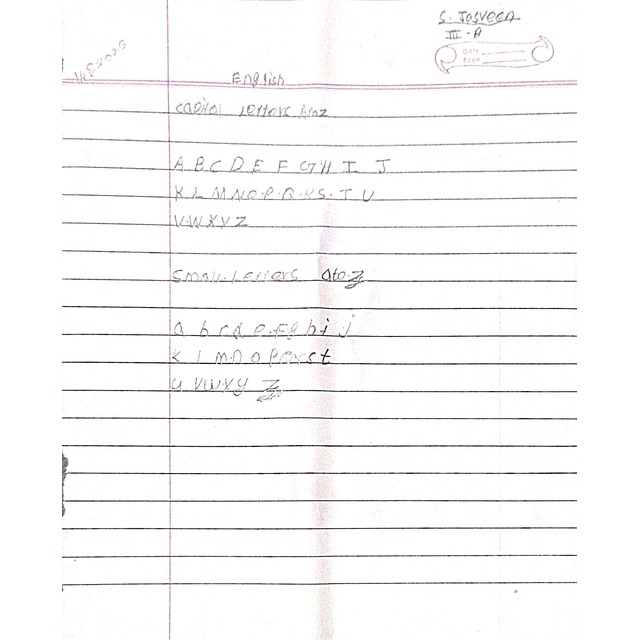 S. Josveen
III - A
Date
Page
14.8.2025
English
capitol Letters Atoz
A B C D E F G H I J
K L M N O P Q R S T U
V W X Y Z
Small Letters a to z
a b c d e f g h i j
k l m n o p q r s t
u v w x y z